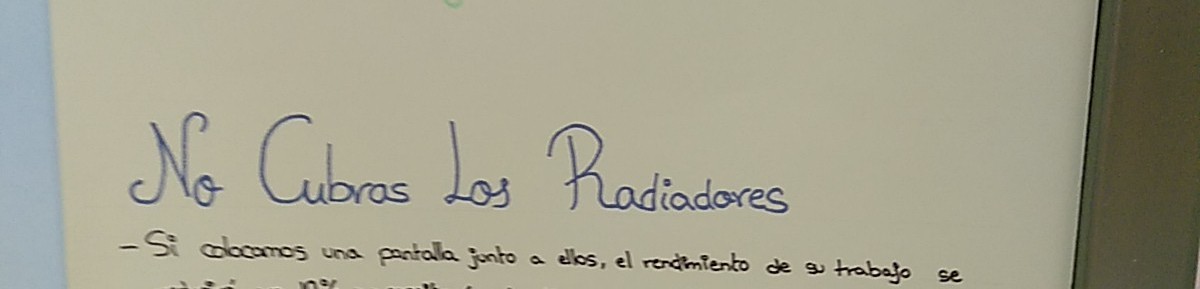 No Cubras Los Radiadores
- Si colocamos una pantalla junto a ellos, el rendimiento de su trabajo se